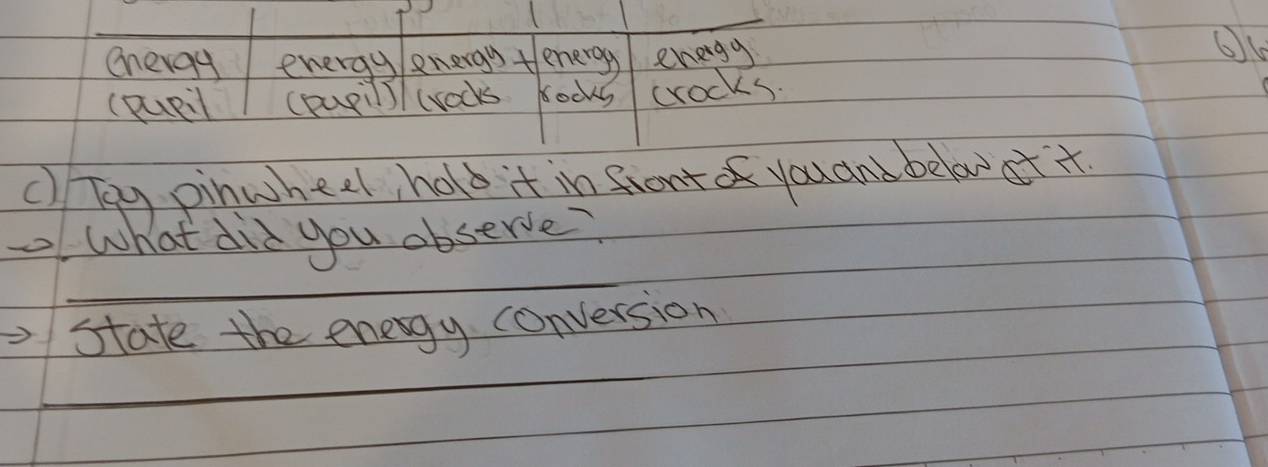 energy | energy | energy + | energy | energy
(pupil | (pupil) | (rocks | rocks | (rocks.
6)
c) Toy pinwheel, hold it in front of you and below at it.
→ What did you observe?
→ State the energy conversion